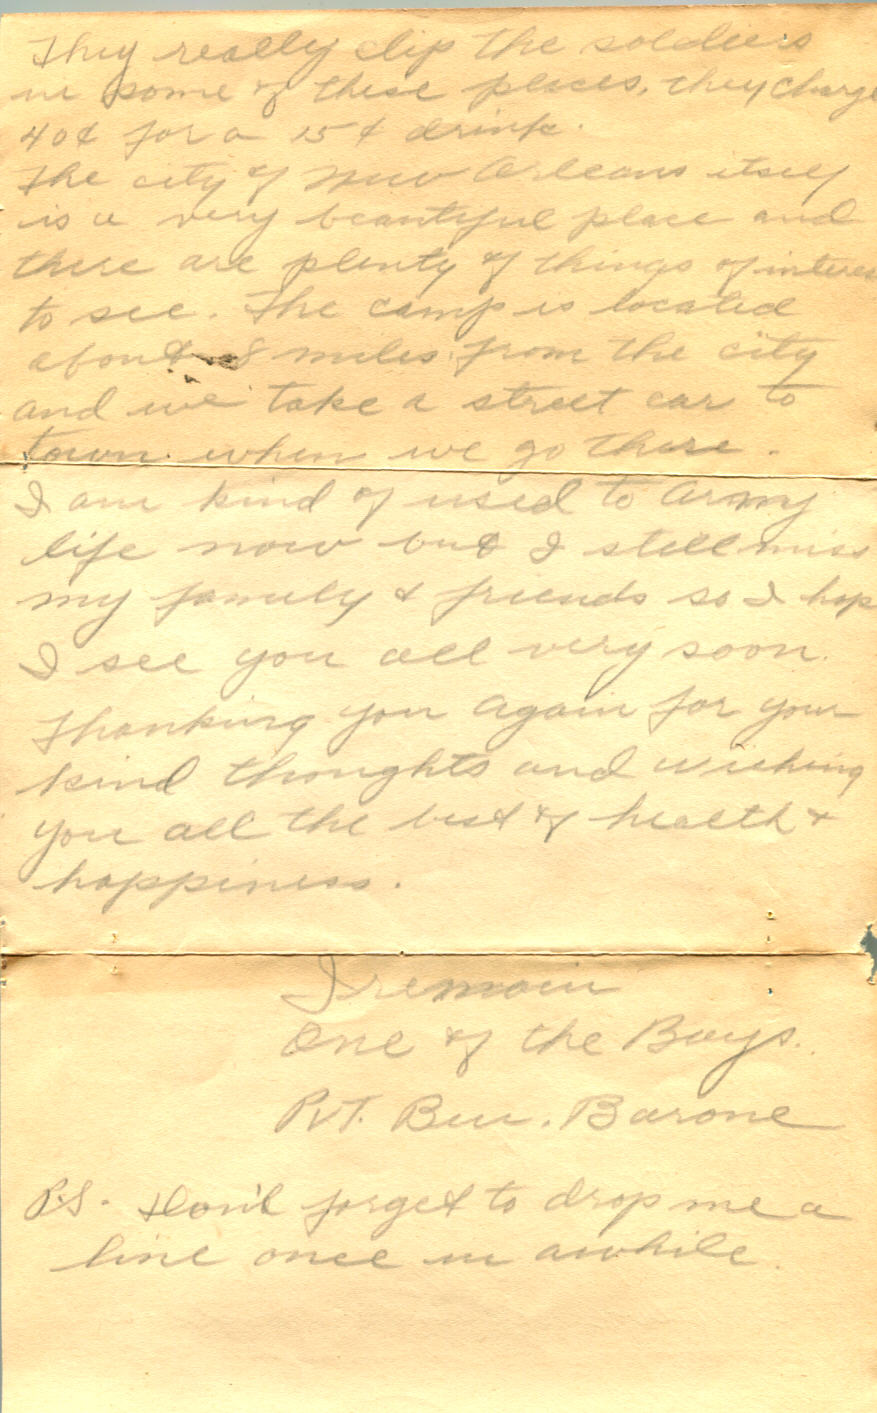 They really clip the soldiers
in some of these places, they charge
40¢ for a 15¢ drink.
The city of New Orleans itself
is a very beautiful place and
there are plenty of things of interes
to see. The camp is located
about 8 miles from the city
and we take a street car to
town when we go there.
I am kind of used to Army
life now but I still miss
my family & friends so I hop
I see you all very soon.
Thanking you again for your
kind thoughts and wishing
you all the best of health &
happiness.
I remain
One of the Boys.
Pvt. Ben. Barone
P.S. Don't forget to drop me a
line once in awhile.